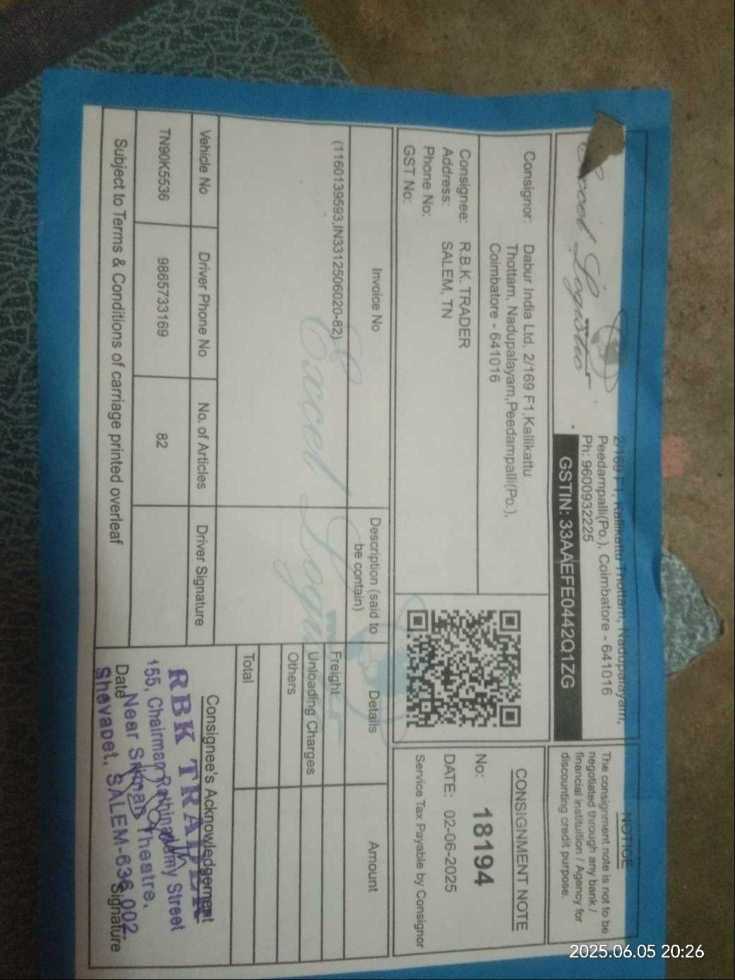 Excel Logistics
2/169 F1, Kallikattu Thottam, Nadupalayam,
Peedampalli(Po.), Coimbatore - 641016
Ph: 9600932225
GSTIN: 33AAEFE0442Q1ZG
NOTICE
The consignment note is not to be
negotiated through any bank /
financial instituition / Agency for
discounting credit purpose.
Consignor: Dabur India Ltd, 2/169 F1,Kallikattu
Thottam, Nadupalayam,Peedampalli(Po.),
Coimbatore - 641016
CONSIGNMENT NOTE
No: 18194
DATE: 02-06-2025
Service Tax Payable by Consignor
Consignee: R.B.K. TRADER
Address: SALEM, TN
Phone No:
GST No:
Invoice No
Description (said to
be contain)
Details
Amount
(1160139593,IN3312506020-82)
Excel Logistics
Freight
Unloading Charges
Others
Total
Vehicle No
Driver Phone No
No. of Articles
Driver Signature
TN90K5536
9865733169
82
Consignee's Acknowledgement
RBK TRADER
155, Chairman Rathinasamy Street
Near Theatre,
Shevapet, SALEM-636 002.
Date
Signature
Subject to Terms & Conditions of carriage printed overleaf
2025.06.05 20:26